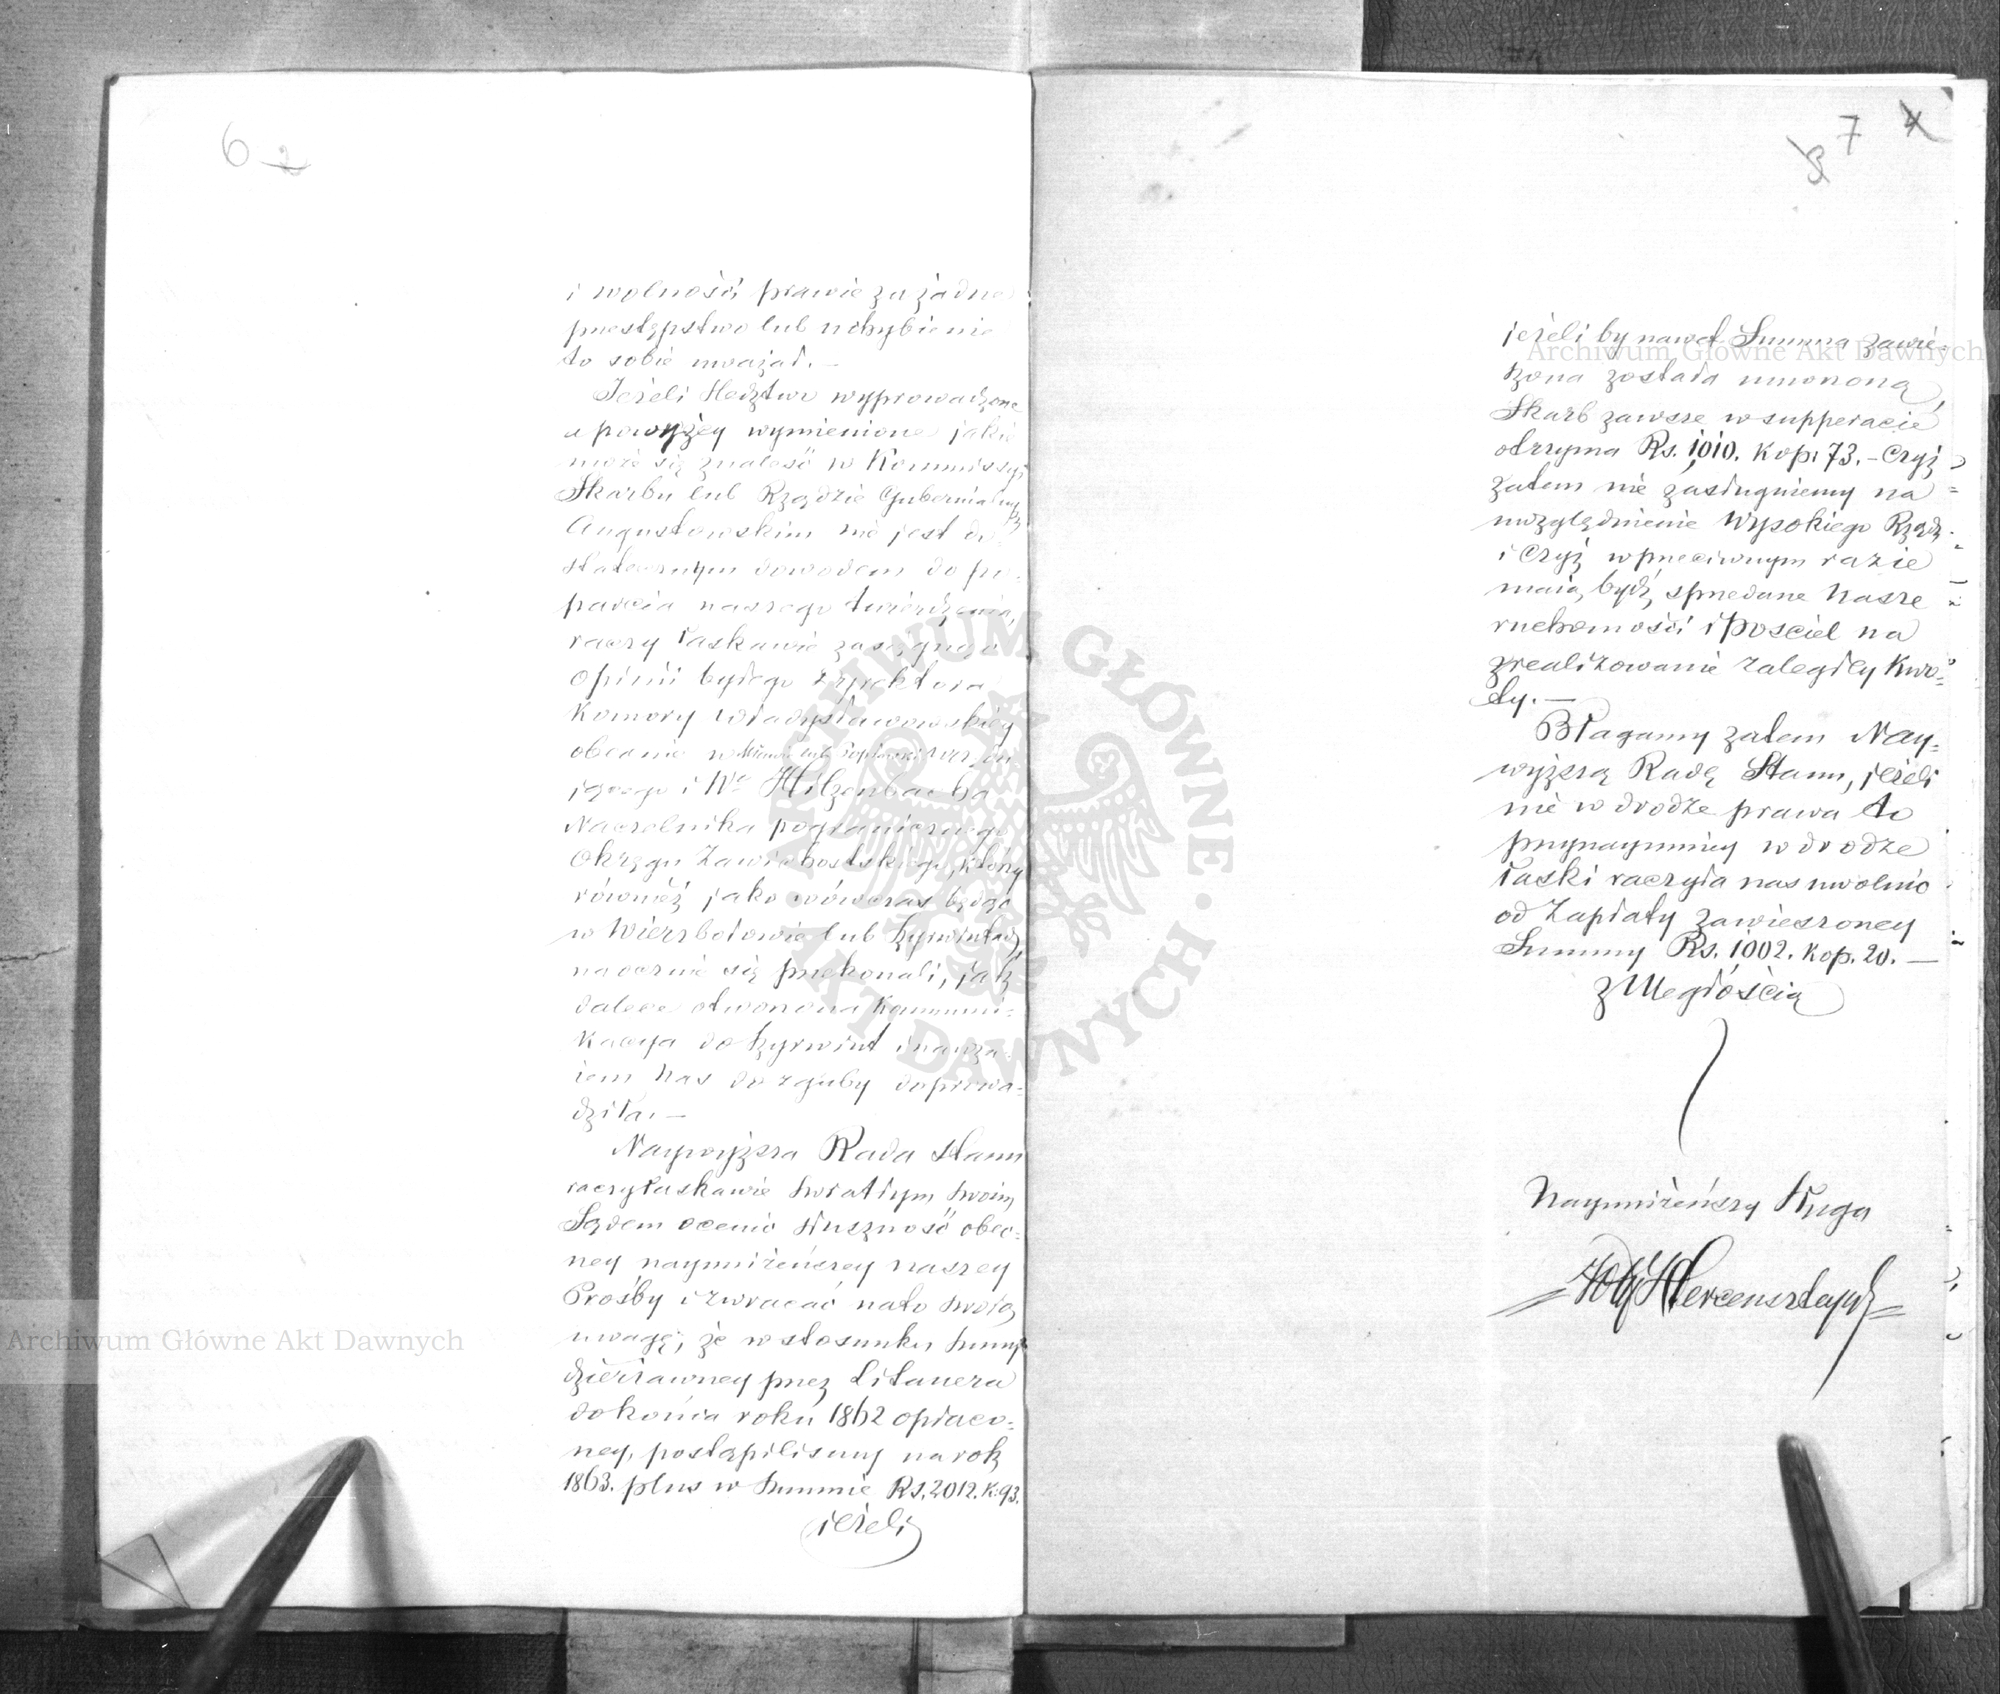 6 2
i wolności, prawie za żadne
przestępstwo lub uchybienie
to sobie uważał. —
Jeżeli śledztwo wyprowadzone
a powyżey wymienione jakie
może się znaleść w Kommissyi
Skarbu lub Rządzie Gubernialnym
Augustowskim nie jest do-
statecznym dowodem do po-
parcia naszego twierdzenia,
raczy łaskawie zasięgnąć
opinii byłego Inspektora
Komory Władysławowskiey
obecnie w
jącego i Wo Hilzenbacha
Naczelnika pogranicznego
Okręgu Zawichostskiego, który
również jako wówczas będąc
w Wierzbołowie lub Kyrwintach
naocznie się przekonali, jak
dalece otworzona Kommuni-
kacya do Kyrwint
iem nas do zguby doprowa-
dziła. —
Naywyższa Rada Stanu
raczy łaskawie światłym swoim
Sądem ocenić słuszność obec-
ney nayuniżeńszey naszey
Prośby i zwracać na to swoią
uwagę, że w stosunku summy
dzierżawney przez Litauera
do końca roku 1862 opłaco-
ney, postąpiliśmy na rok
1863. plus w summie Rs. 2012. k. 93.
ieżeli
3 7 4
ieżeli by nawet Summa zawie-
szona została umorzoną,
Skarb zawsze w supperacie
otrzyma Rs. 1010. Kop. 73. — Czyż
zatem nie zasługuiemy na
uwzględnienie Wysokiego Rządu
i Czyż w przeciwnym razie
maią bydź sprzedane nasze
ruchomości i Pościel na
zrealizowanie zaległey kwo-
ty. —
Błagamy zatem Nay-
wyższą Radę Stanu, ieżeli
nie w drodze prawa to
przynaymniey w drodze
łaski raczyła nas uwolnić
od Zapłaty zawieszoney
Summy Rs. 1002. Kop. 20. —
z Uległością
Nayuniżeńszy Sługa
Hercensztayn
Archiwum Główne Akt Dawnych
Archiwum Główne Akt Dawnych
ARCHIWUM GŁÓWNE · AKT DAWNYCH ·